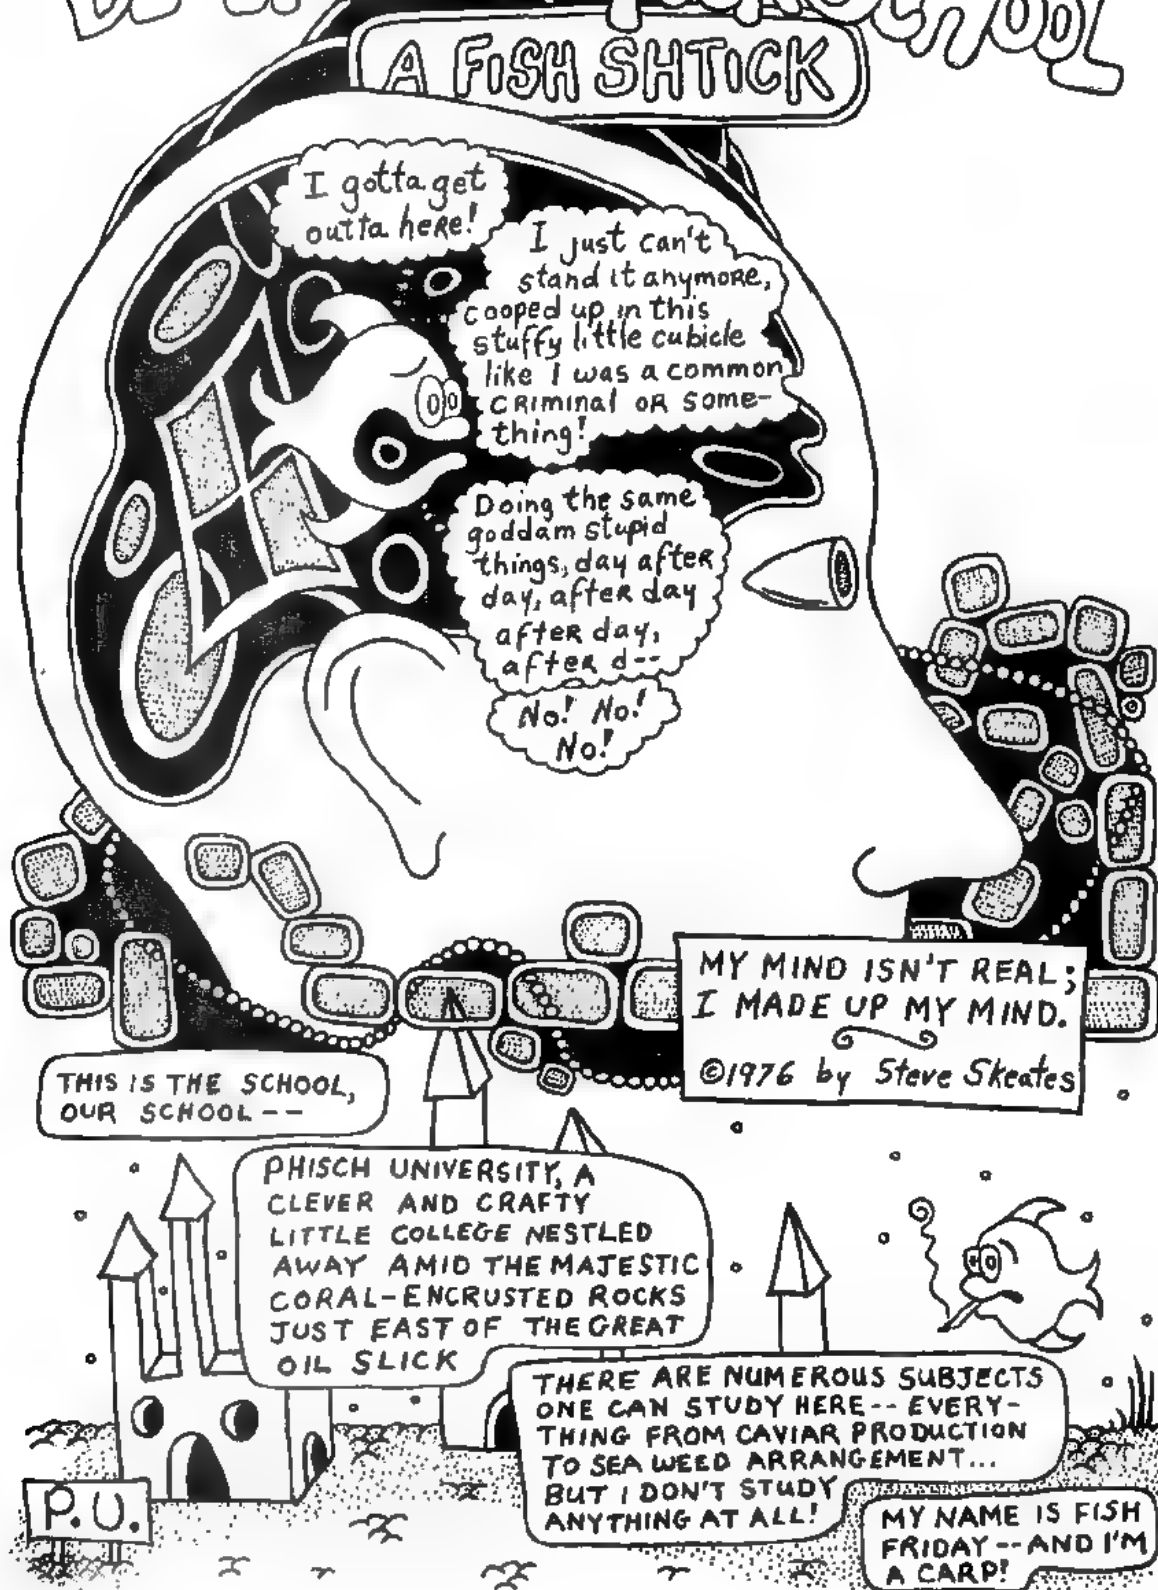 SCHOOL
A FISH SHTICK
I gotta get
outta here!
I just can't
stand it anymore,
cooped up in this
stuffy little cubicle
like I was a common
criminal or some-
thing!
Doing the same
goddam stupid
things, day after
day, after day
after day,
after d--
No! No!
No!
MY MIND ISN'T REAL;
I MADE UP MY MIND.
©1976 by Steve Skeates
THIS IS THE SCHOOL,
OUR SCHOOL--
PHISCH UNIVERSITY, A
CLEVER AND CRAFTY
LITTLE COLLEGE NESTLED
AWAY AMID THE MAJESTIC
CORAL-ENCRUSTED ROCKS
JUST EAST OF THE GREAT
OIL SLICK
THERE ARE NUMEROUS SUBJECTS
ONE CAN STUDY HERE--EVERY-
THING FROM CAVIAR PRODUCTION
TO SEA WEED ARRANGEMENT...
BUT I DON'T STUDY
ANYTHING AT ALL!
P.U.
MY NAME IS FISH
FRIDAY--AND I'M
A CARP!